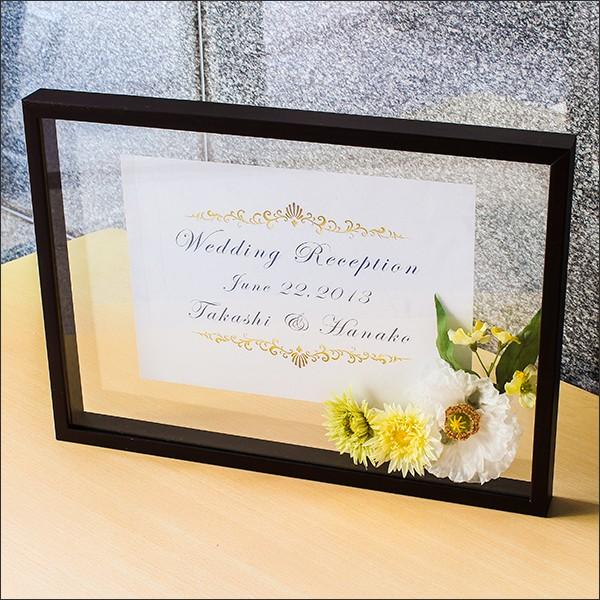 Wedding Reception
June 22,2013
Takashi & Hanako